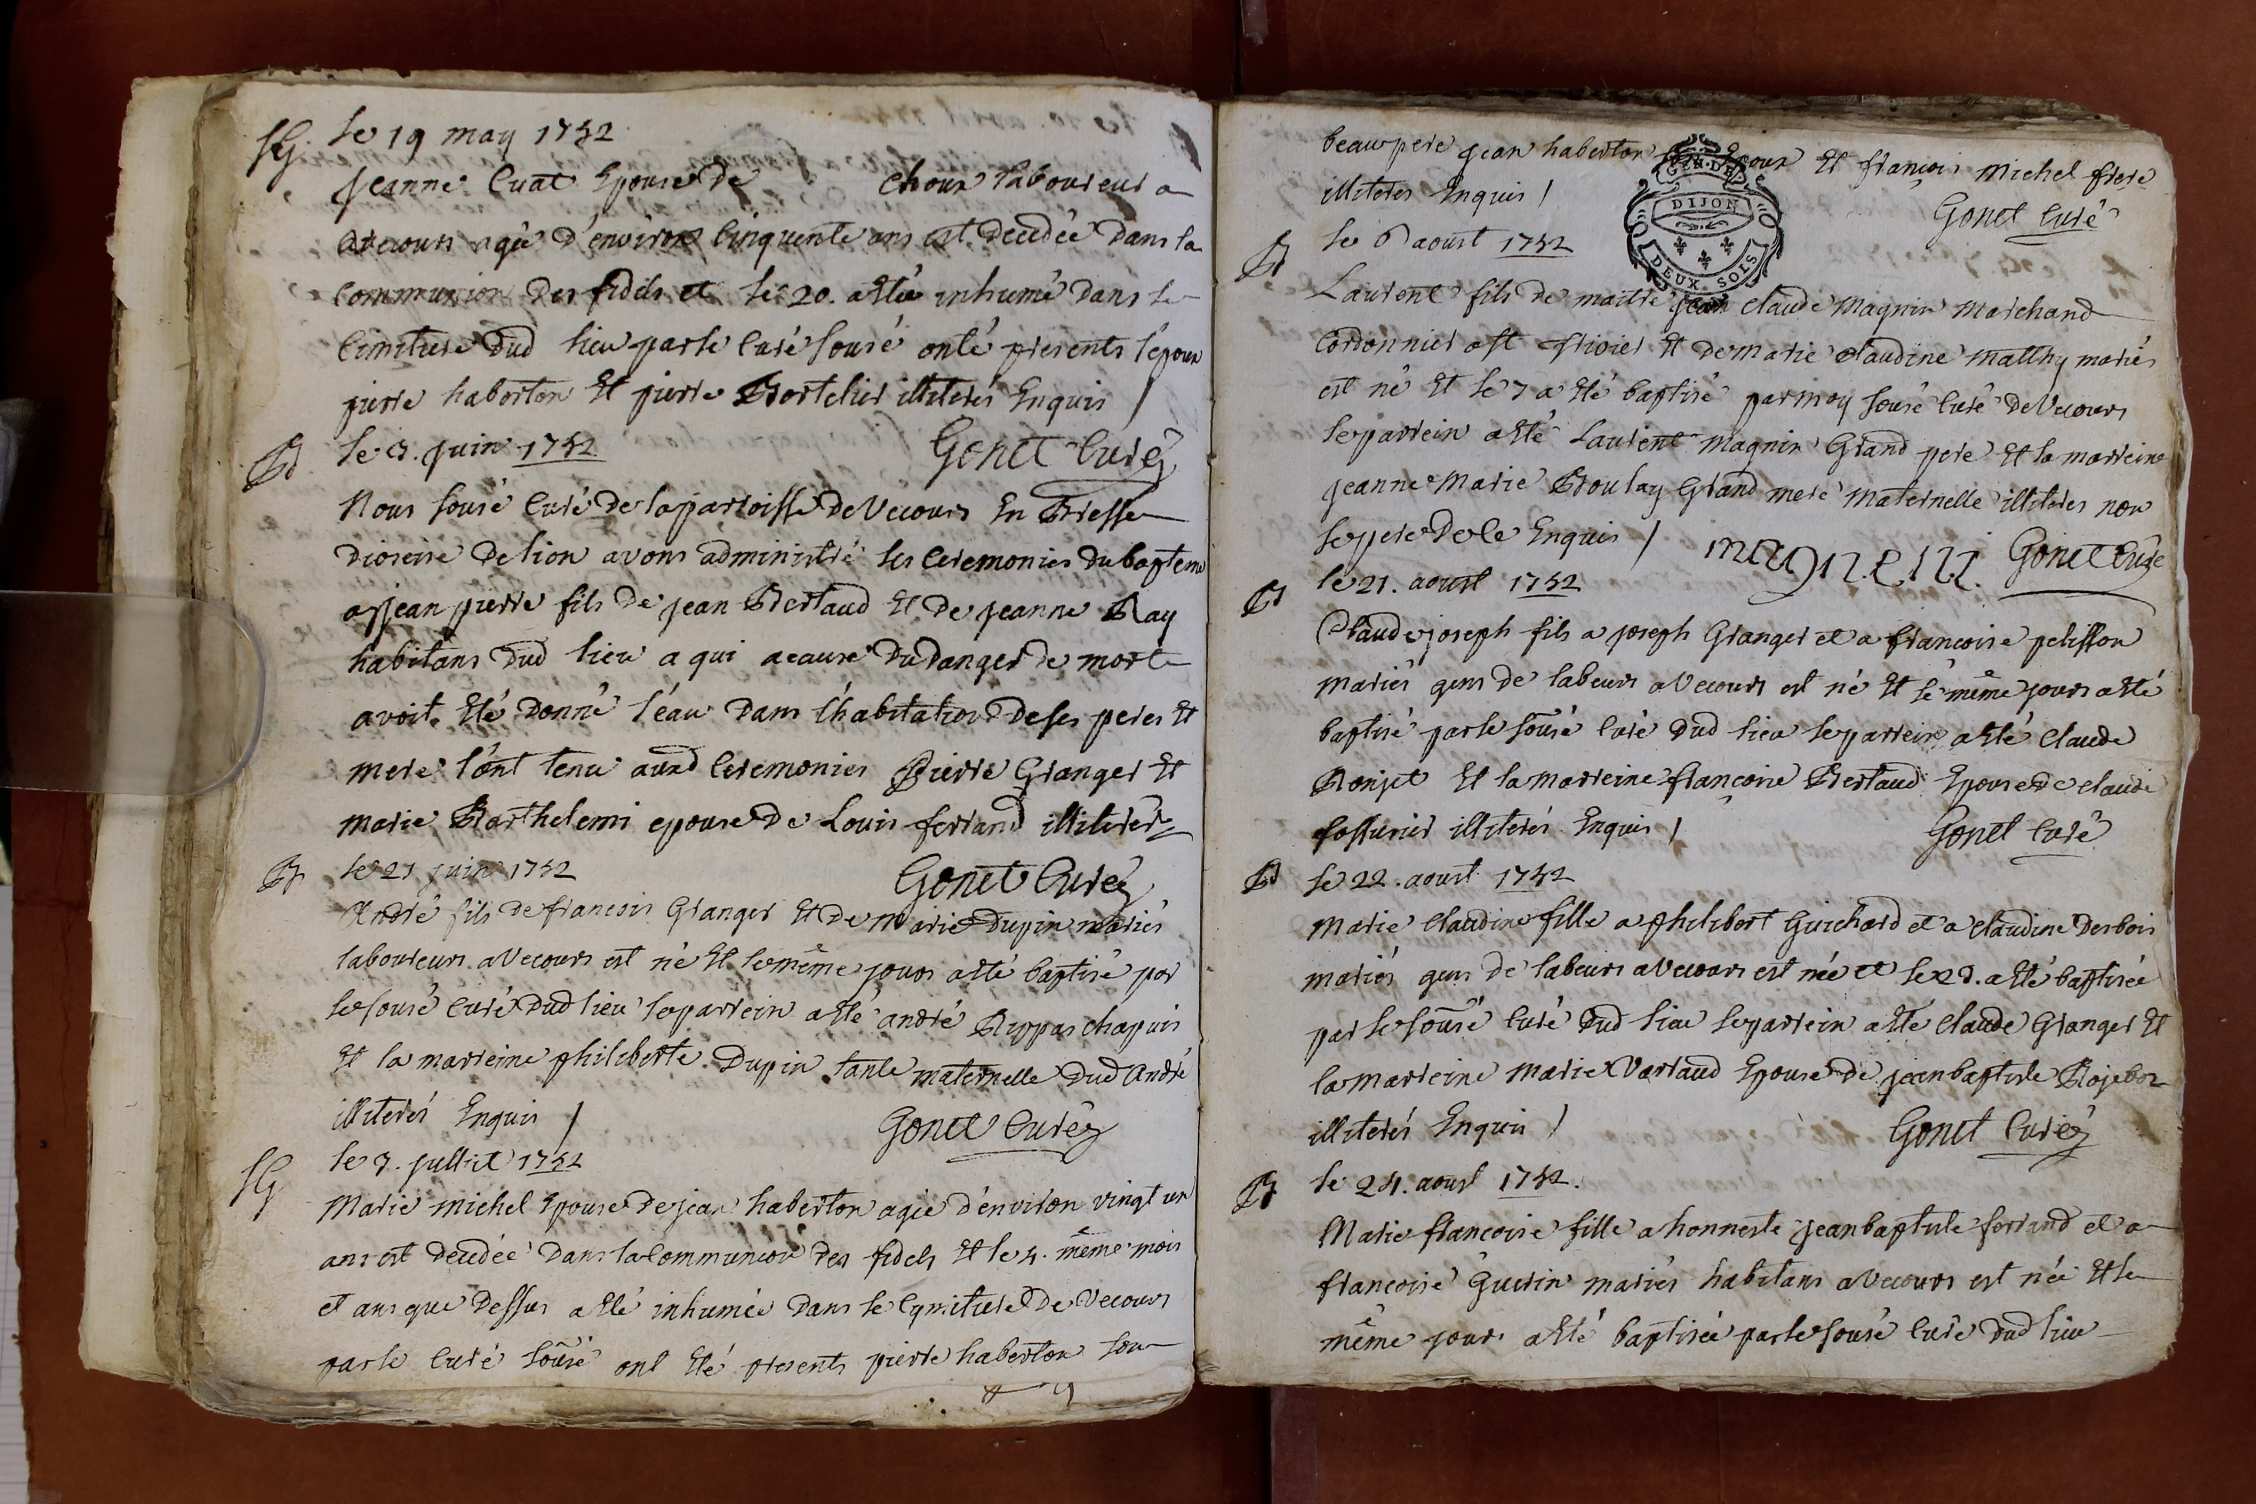 SG. le 19 may 1752
Jeanne Cuat Epouse de choux laboureur a
Vecours agée d'environ Cinquente ans est decedée Dans la
Communion Des fidels et le 20. a esté inhumé Dans le
Cimiture Dud lieu par le Curé Sousé onté presents l'epoux
pierre haberton Et pierre Bortelier illiterés Enquis /
B le 3. juin 1752 Gonet Curé
Nous Sousé Curé De la parroisse De Vecours En Bresse
Dioseise De lion avons administré les Ceremonies Du baptem
a jean pierre fils De jean Bertaud Et De jeanne Ray
habitans Dud lieu a qui acause Du Danger de mort
avoit Eté Donné l'éau Dans l'habitation De ses peres Et
mere l'ont tenu auxd Ceremonies Pierre Granger Et
marie Barthelemi epouse De Louis ferrand illiterés
B le 21 juin 1752 Gonet Curé
André fils de francois Granger Et De Marie Dupin mariés
laboureurs a Vecours est né Et le même jours a sté baptisé par
le sousé Curé Dud lieu le parrein a sté andré Rippas chapuis
Et la marreine philiberte Dupin tante maternelle Dud André
illiterés Enquis / Gonet Curé
SG le 3. julliet 1752
Marie michel Epouse De jean haberton agée d'environ vingt un
ans est decedée Dans la Communion Des fidels Et le 4. même mois
et ans que Dessus a sté inhumée Dans le Cymiture De Vecours
par le Curé Sousé ont Eté presents pierre haberton son
beau pere jean haberton Epoux Et françois Michel frere
illiteres Enquis / Gonet Curé
GEN. DE
DIJON
DEUX SOLS
B le 6 aoust 1752
Laurent fils De maitre jean Claude Magnin Marchand
Cordonnier a st trivier Et De marie Claudine Matthy mariés
est né Et le 7 a Eté baptisé par moy Sousé Curé De Vecours
le parrein a sté Laurent Magnin Grand pere Et la marreine
jeanne Marie Broulay Grand mere maternelle illiteres non
le pere De ce Enquis / magnein Gonet Curé
B le 21. aoust 1752
Claude joseph fils a joseph Granger et a francoise pelisson
mariés gens de labeurs a Vecours est né Et le même jours a sté
baptisé par le sousé Curé Dud lieu le parrein a sté Claude
Ronjet Et la marreine françoise Bertaud Epouse de claude
fossurier illiterés Enquis / Gonet Curé
B le 22. aoust 1752
Marie Claudine fille a philibert Guichard et a Claudine Desbois
mariés gens de labeurs a Vecours est née et le 23. a sté baptisée
par le sousé Curé Dud lieu le parrein a sté Claude Granger Et
la marreine Marie Vartaud Epouse De jean baptiste
illiterés Enquis / Gonet Curé
B le 24. aoust 1752.
Marie francoise fille a honneste jean baptiste ferrand et a
francoise Guerin mariés habitans a Vecours est née Et le
même jour a sté baptisée par le sousé Curé Dud lieu